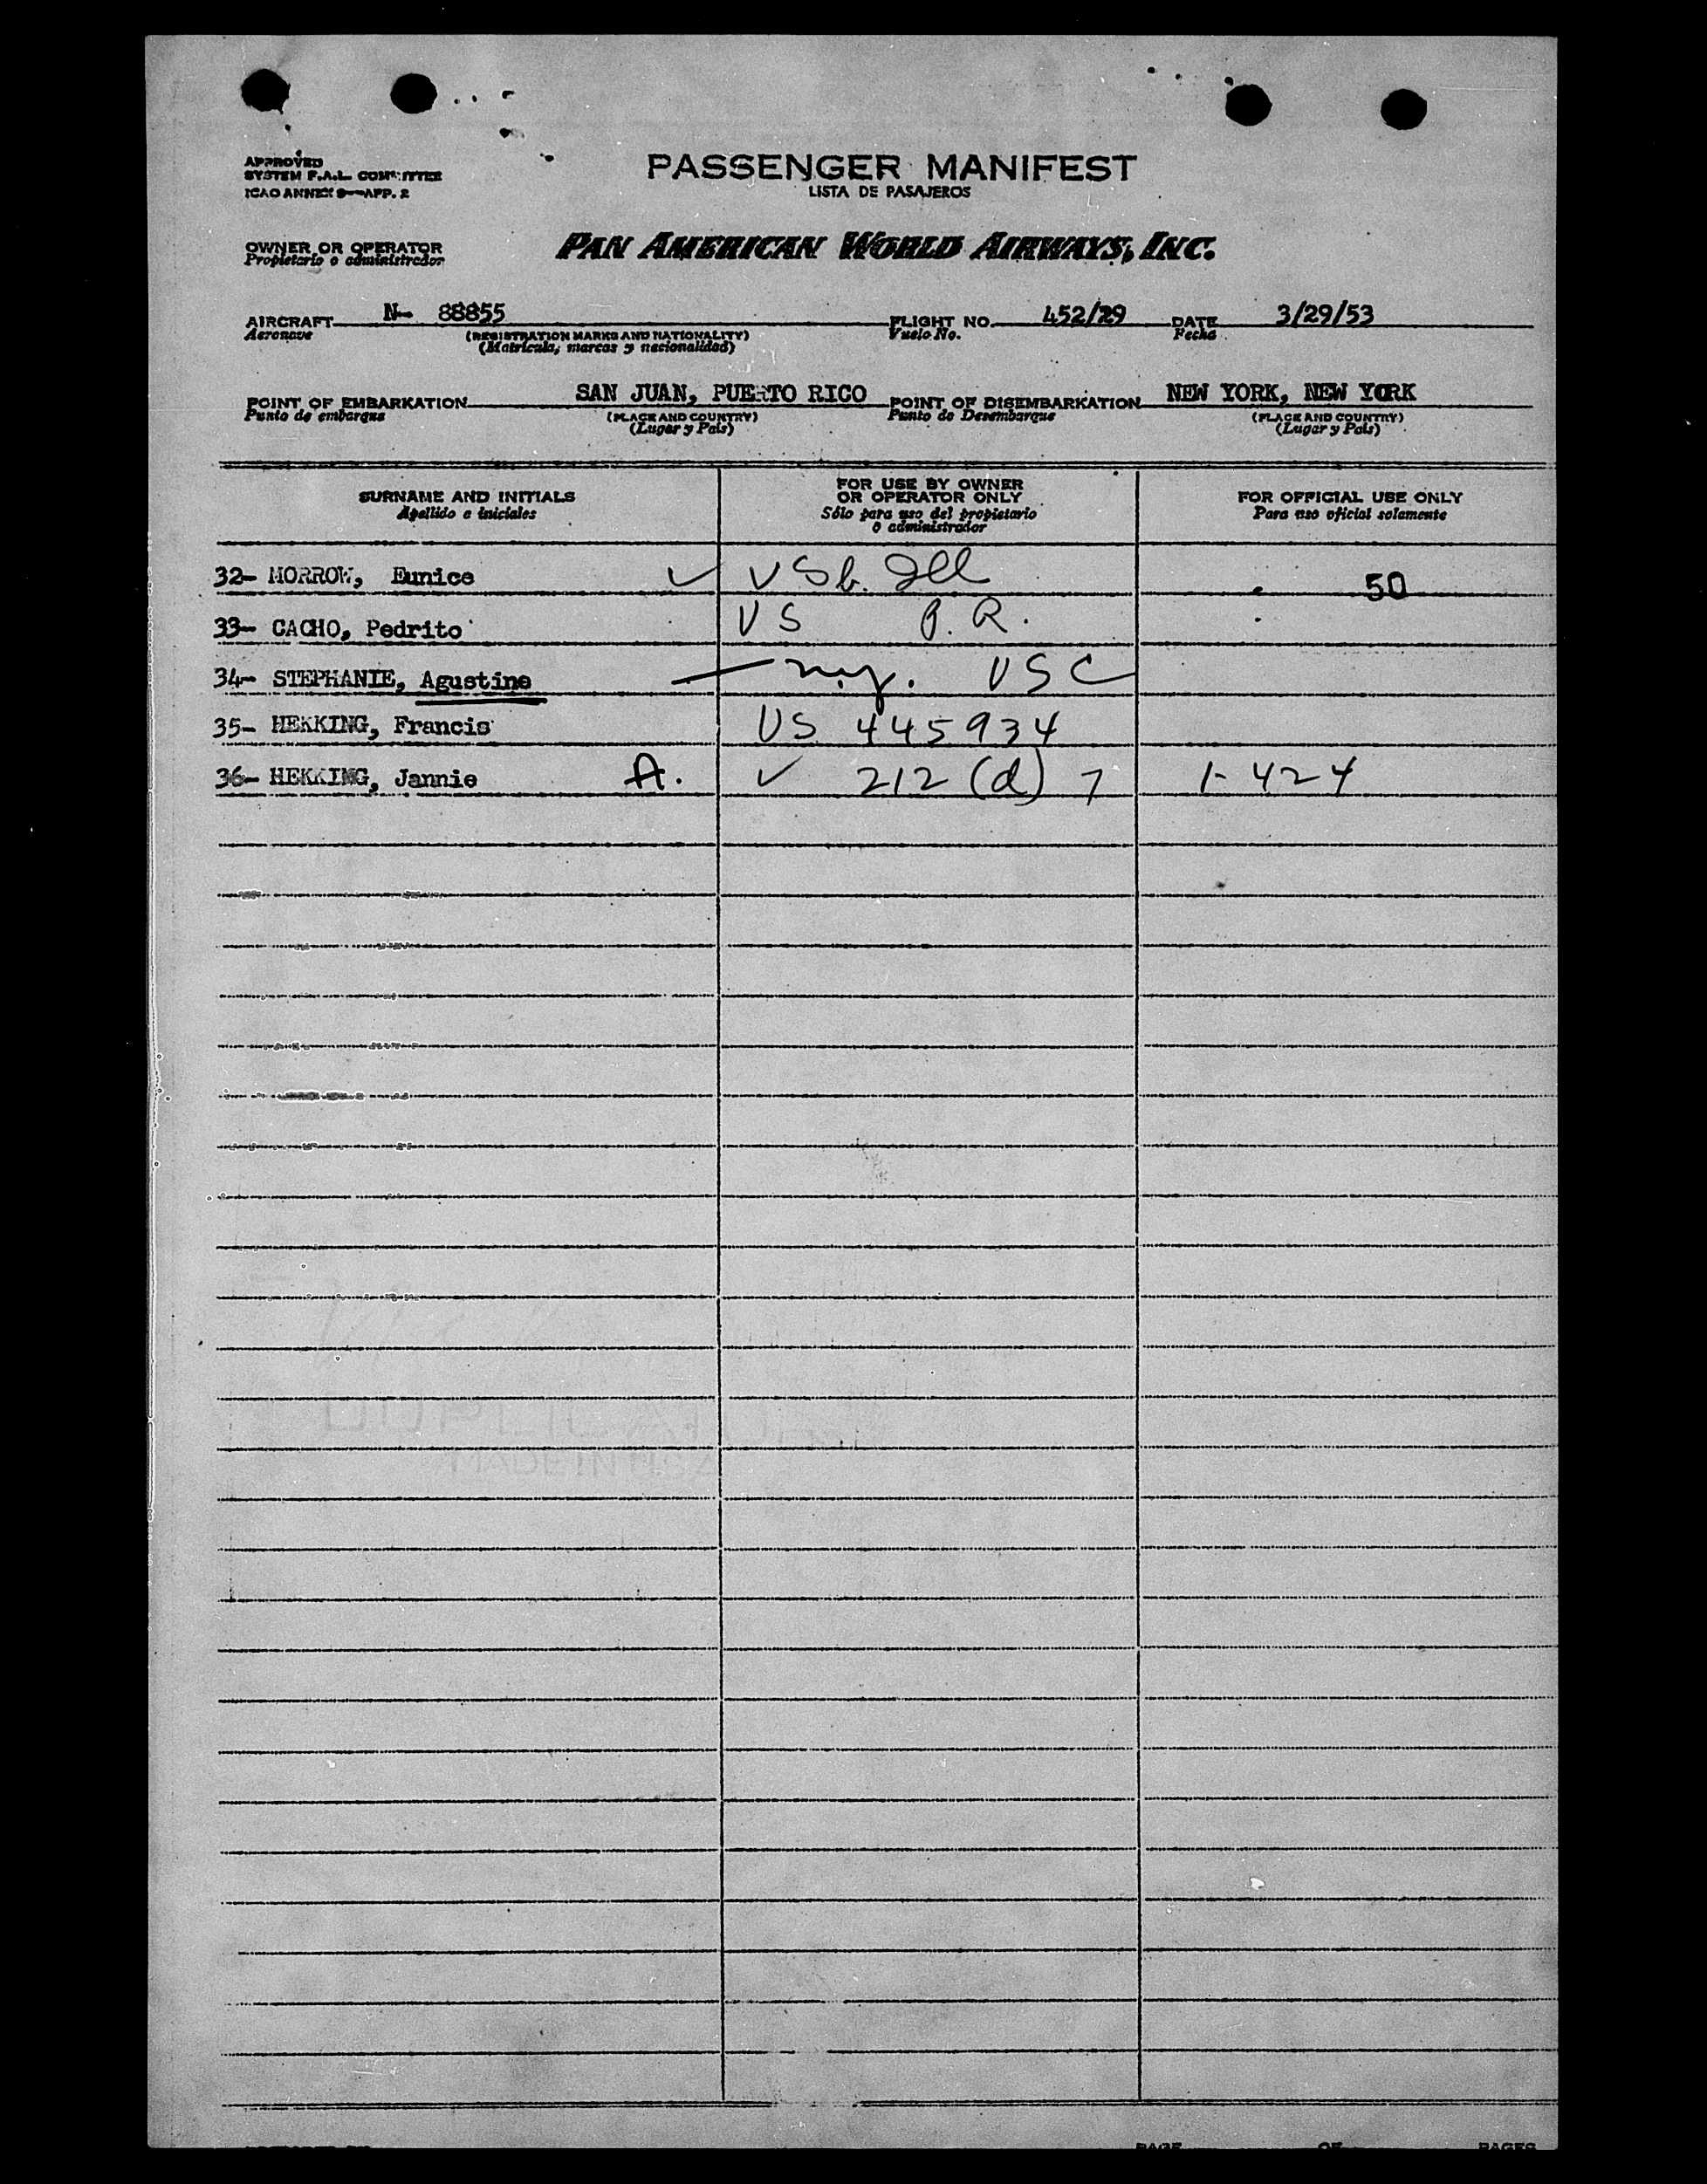 APPROVED
SYSTEM F.A.L. COMMITTEE
ICAO ANNEX 9—APP. 2
PASSENGER MANIFEST
LISTA DE PASAJEROS
OWNER OR OPERATOR
Propietario o administrador
PAN AMERICAN WORLD AIRWAYS, INC.
AIRCRAFT N- 88855 FLIGHT NO. 452/29 DATE 3/29/53
Aeronave (REGISTRATION MARKS AND NATIONALITY) Vuelo No. Fecha
(Matricula, marcas y nacionalidad)
POINT OF EMBARKATION SAN JUAN, PUERTO RICO POINT OF DISEMBARKATION NEW YORK, NEW YORK
Punto de embarque (PLACE AND COUNTRY) Punto de Desembarque (PLACE AND COUNTRY)
(Lugar y Pais) (Lugar y Pais)
SURNAME AND INITIALS
Apellido e iniciales
FOR USE BY OWNER
OR OPERATOR ONLY
Sólo para uso del propietario
o administrador
FOR OFFICIAL USE ONLY
Para uso oficial solamente
32- MORROW, Eunice ✓ USb. Ill 50
33- CACHO, Pedrito US P.R.
34- STEPHANIE, Agustine — n.y. USC
35- HEKKING, Francis US 445934
36- HEKKING, Jannie A. ✓ 212 (d) 7 1-424
DUPLICATOR
MADE IN U.S.A.
PAGE OF PAGES